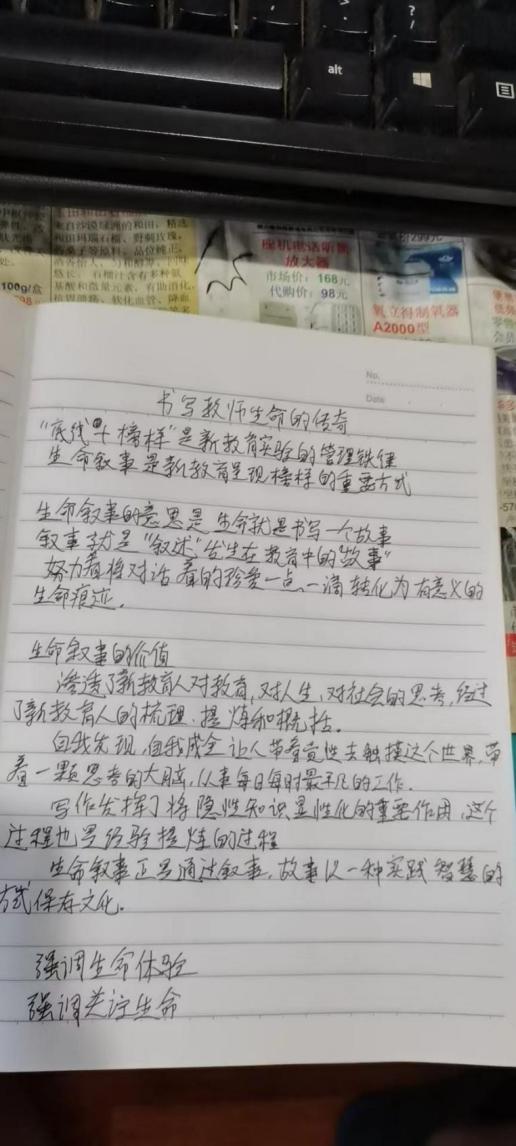 alt
?
/
>
.
100g/盒
座机电话听筒
放大器
市场价：168元
代购价：98元
价299元
氧立得制氧器
A2000型
来自沙漠绿洲的和田，精选
和田玛瑙石榴、野刺玫瑰、
No.
Date
书写教师生命的传奇
“底线+榜样”是新教育实验的管理铁律
生命叙事是新教育呈现榜样的重要方式
生命叙事的意思是 生命就是书写一个故事
叙事就是“叙述”发生在教育中的“故事”
努力着将对话着的珍爱一点一滴转化为有意义的
生命痕迹.
生命叙事的价值
渗透了新教育人对教育,对人生,对社会的思考,经过
了新教育人的梳理、提炼和概括.
自我发现,自我成全 让人带着觉性去触摸这个世界,带
着一颗思考的大脑,从事每日每时最平凡的工作.
写作发挥了将隐性知识显性化的重要作用,这个
过程也是经验提炼的过程
生命叙事正是通过叙事,故事以一种实践智慧的
方式保存文化.
强调生命体验
强调关注生命